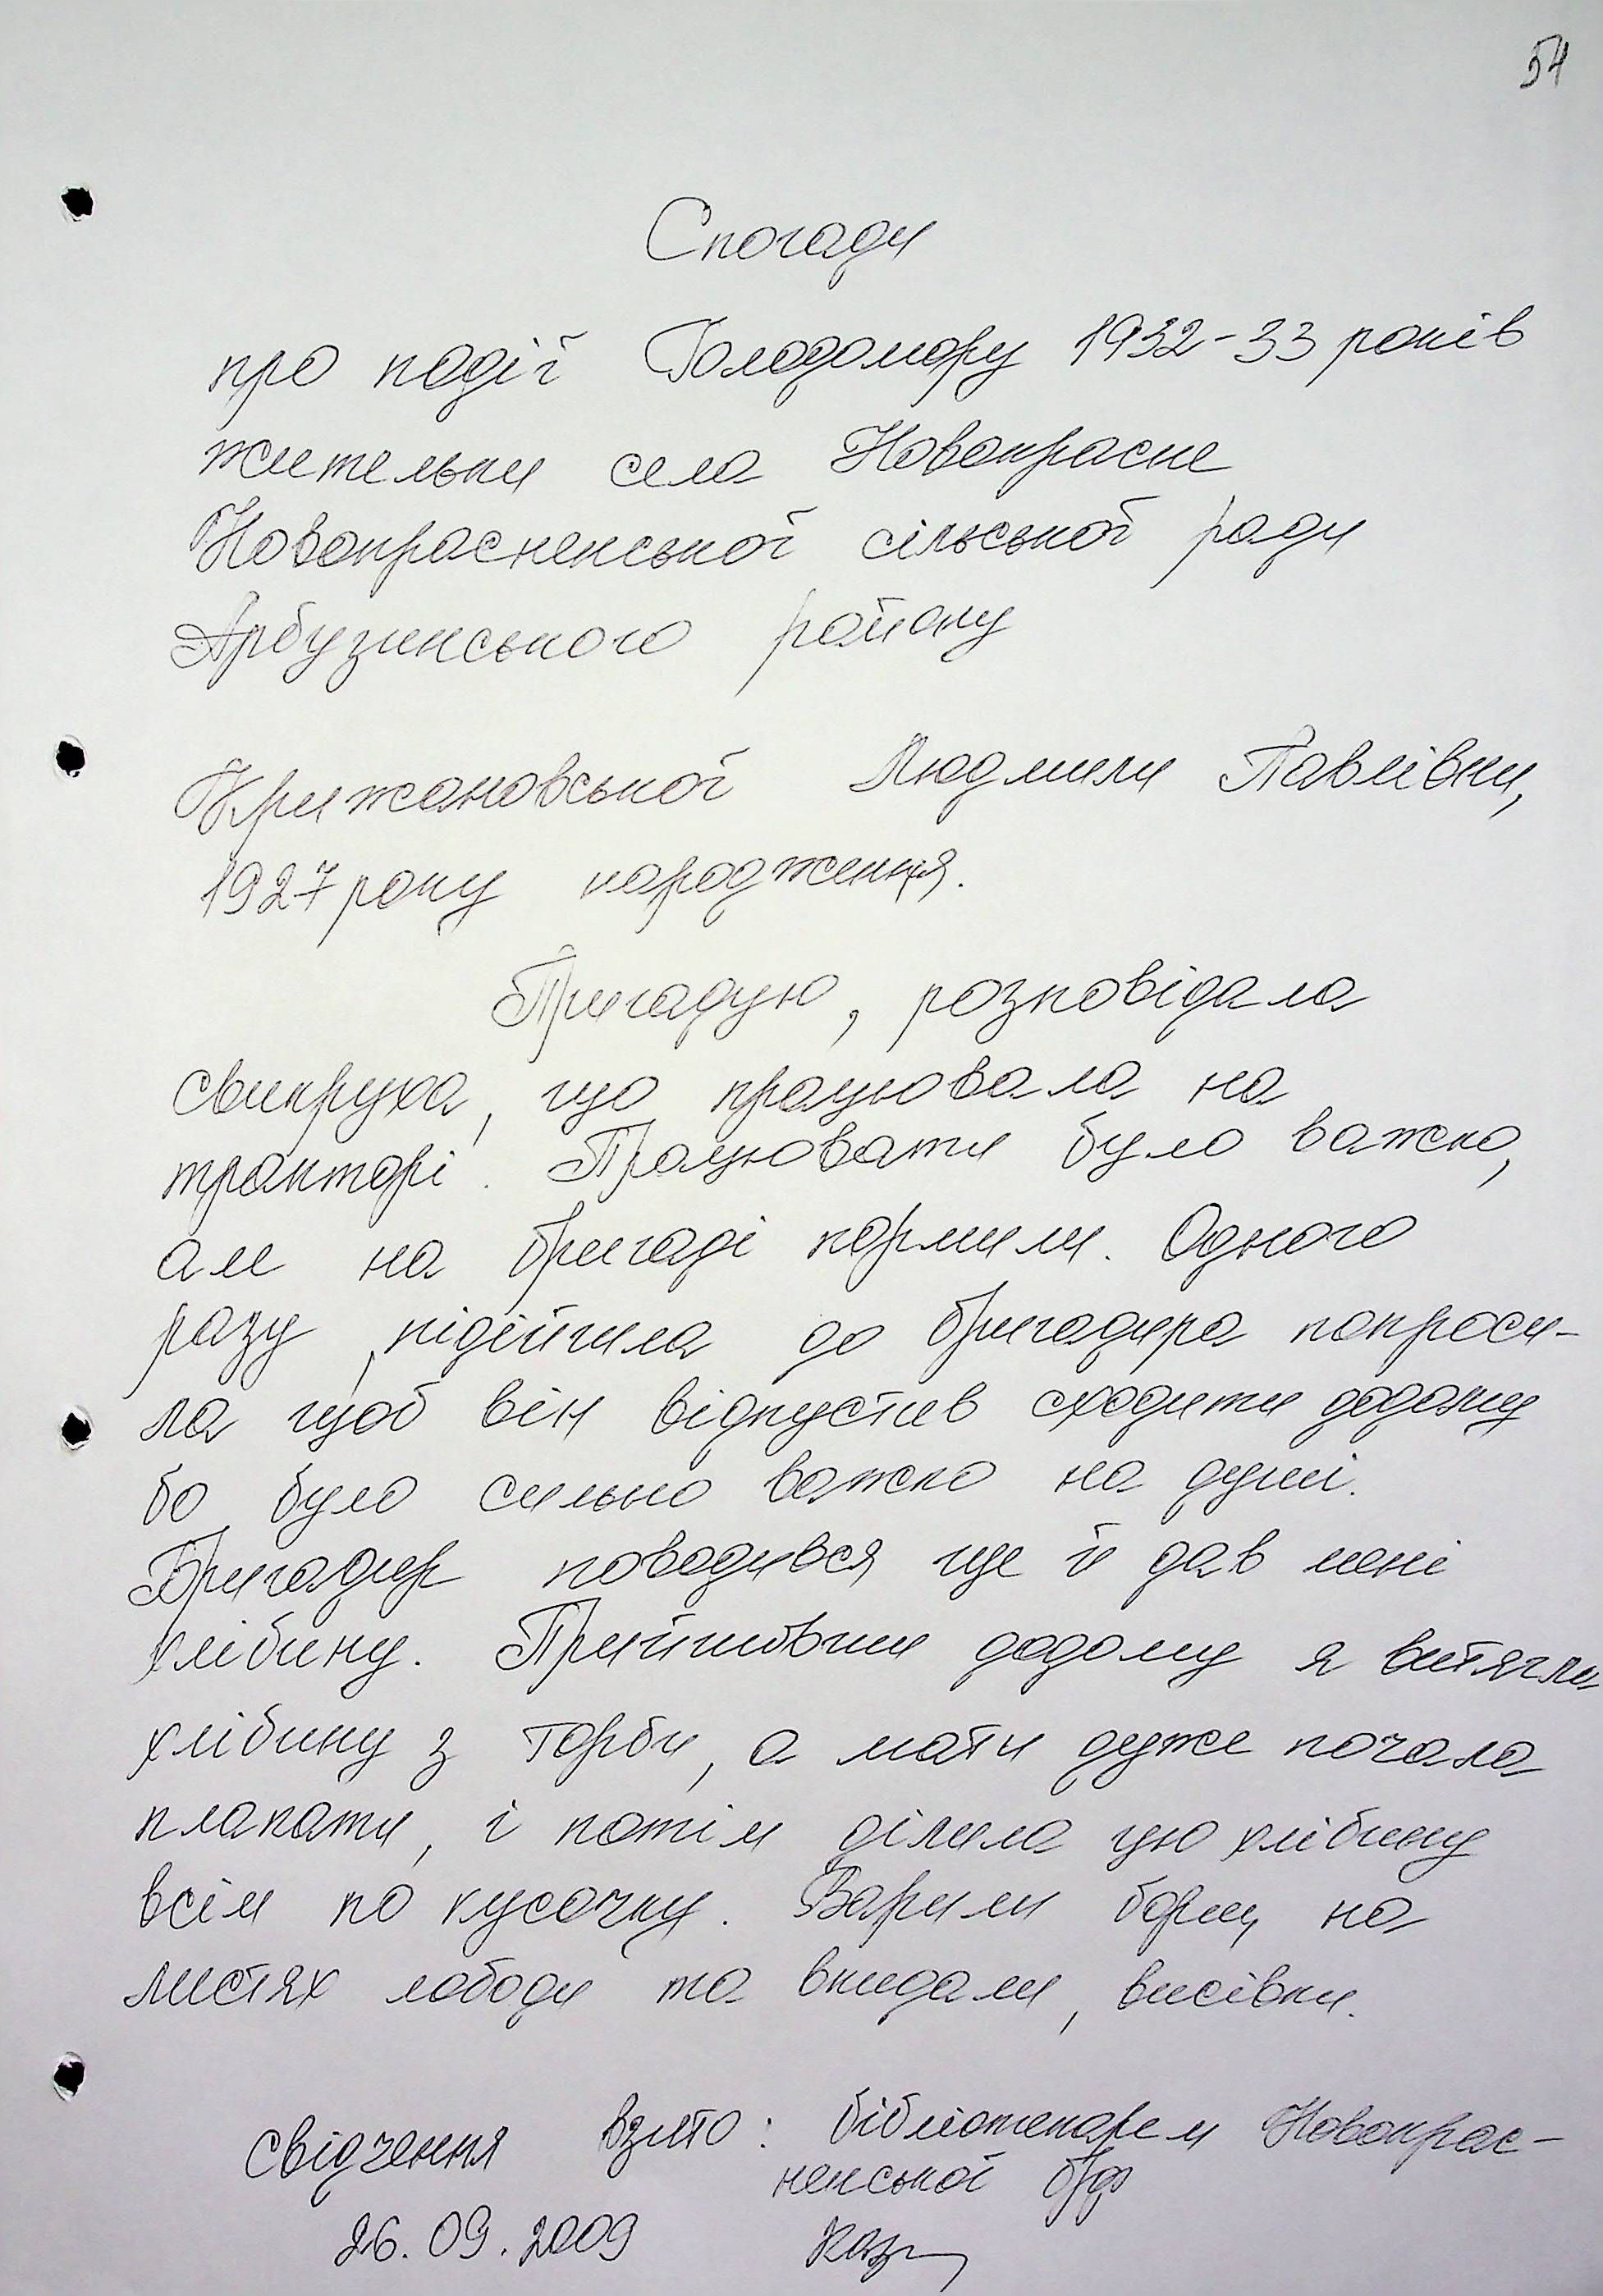 54
Спогади
про події Голодомору 1932-33 років
жительки села Новокрасне
Новокрасненської сільської ради
Арбузинського району
Крижановської Людмили Павлівни,
1927 року народження.
Пригадую, розповідала
свикруха, що працювала на
тракторі. Працювати було важко,
але на бригаді кормили. Одного
разу, підійшла до бригадира попроси-
ла щоб він відпустив сходити додому
бо було сильно важко на душі.
Бригадир поводився ще й дав мені
хлібину. Прийшовши додому я витягла
хлібину з торби, а мати дуже почала
плакати, і потім ділила цю хлібину
всім по кусочку. Варили борщ на
листях лободи та вкидали, висівки.
Свідчення взято: бібліотекарем Новокрас-
ненської б/ф
26.09.2009